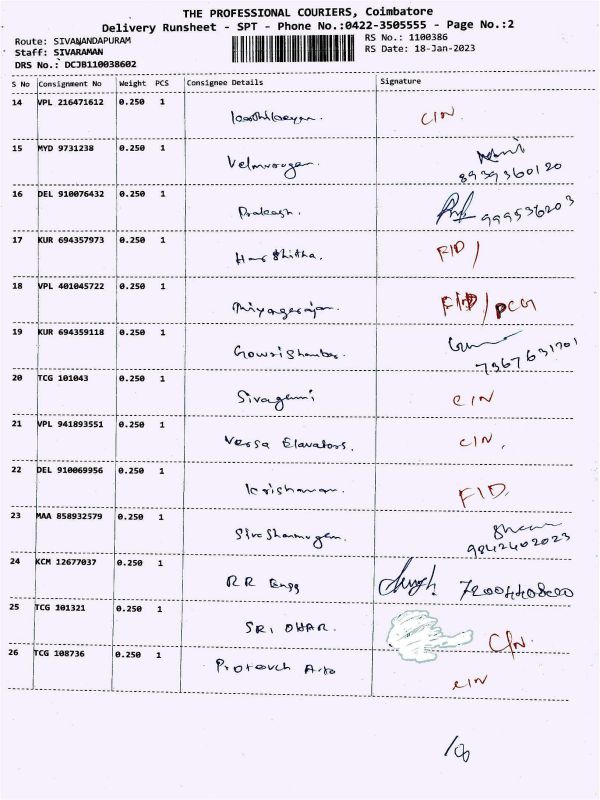 THE PROFESSIONAL COURIERS, Coimbatore
Delivery Runsheet - SPT - Phone No.:0422-3505555 - Page No.:2
Route: SIVANANDAPURAM RS No.: 1100386
Staff: SIVARAMAN RS Date: 18-Jan-2023
DRS No.: DCJB110038602
S No Consignment No Weight PCS Consignee Details Signature
14 VPL 216471612 0.250 1 CIN
15 MYD 9731238 0.250 1 Velmurugan.
8939360120
16 DEL 910076432 0.250 1 Prakash. 999536203
17 KUR 694357973 0.250 1 Harshitha. FID/
18 VPL 401045722 0.250 1 Thiyagarajan. FID/PCG
19 KUR 694359118 0.250 1 Gowrishankar.
7367631701
20 TCG 101043 0.250 1 Sivagami CIN
21 VPL 941893551 0.250 1 Versa Elavators. CIN,
22 DEL 910069956 0.250 1 Krishanan. FID.
23 MAA 858932579 0.250 1 Siva Shanmugam.
9842402023
24 KCM 12677037 0.250 1 RR Engg
25 TCG 101321 0.250 1 SRI OHAR. C/N.
26 TCG 108736 0.250 1 CIN